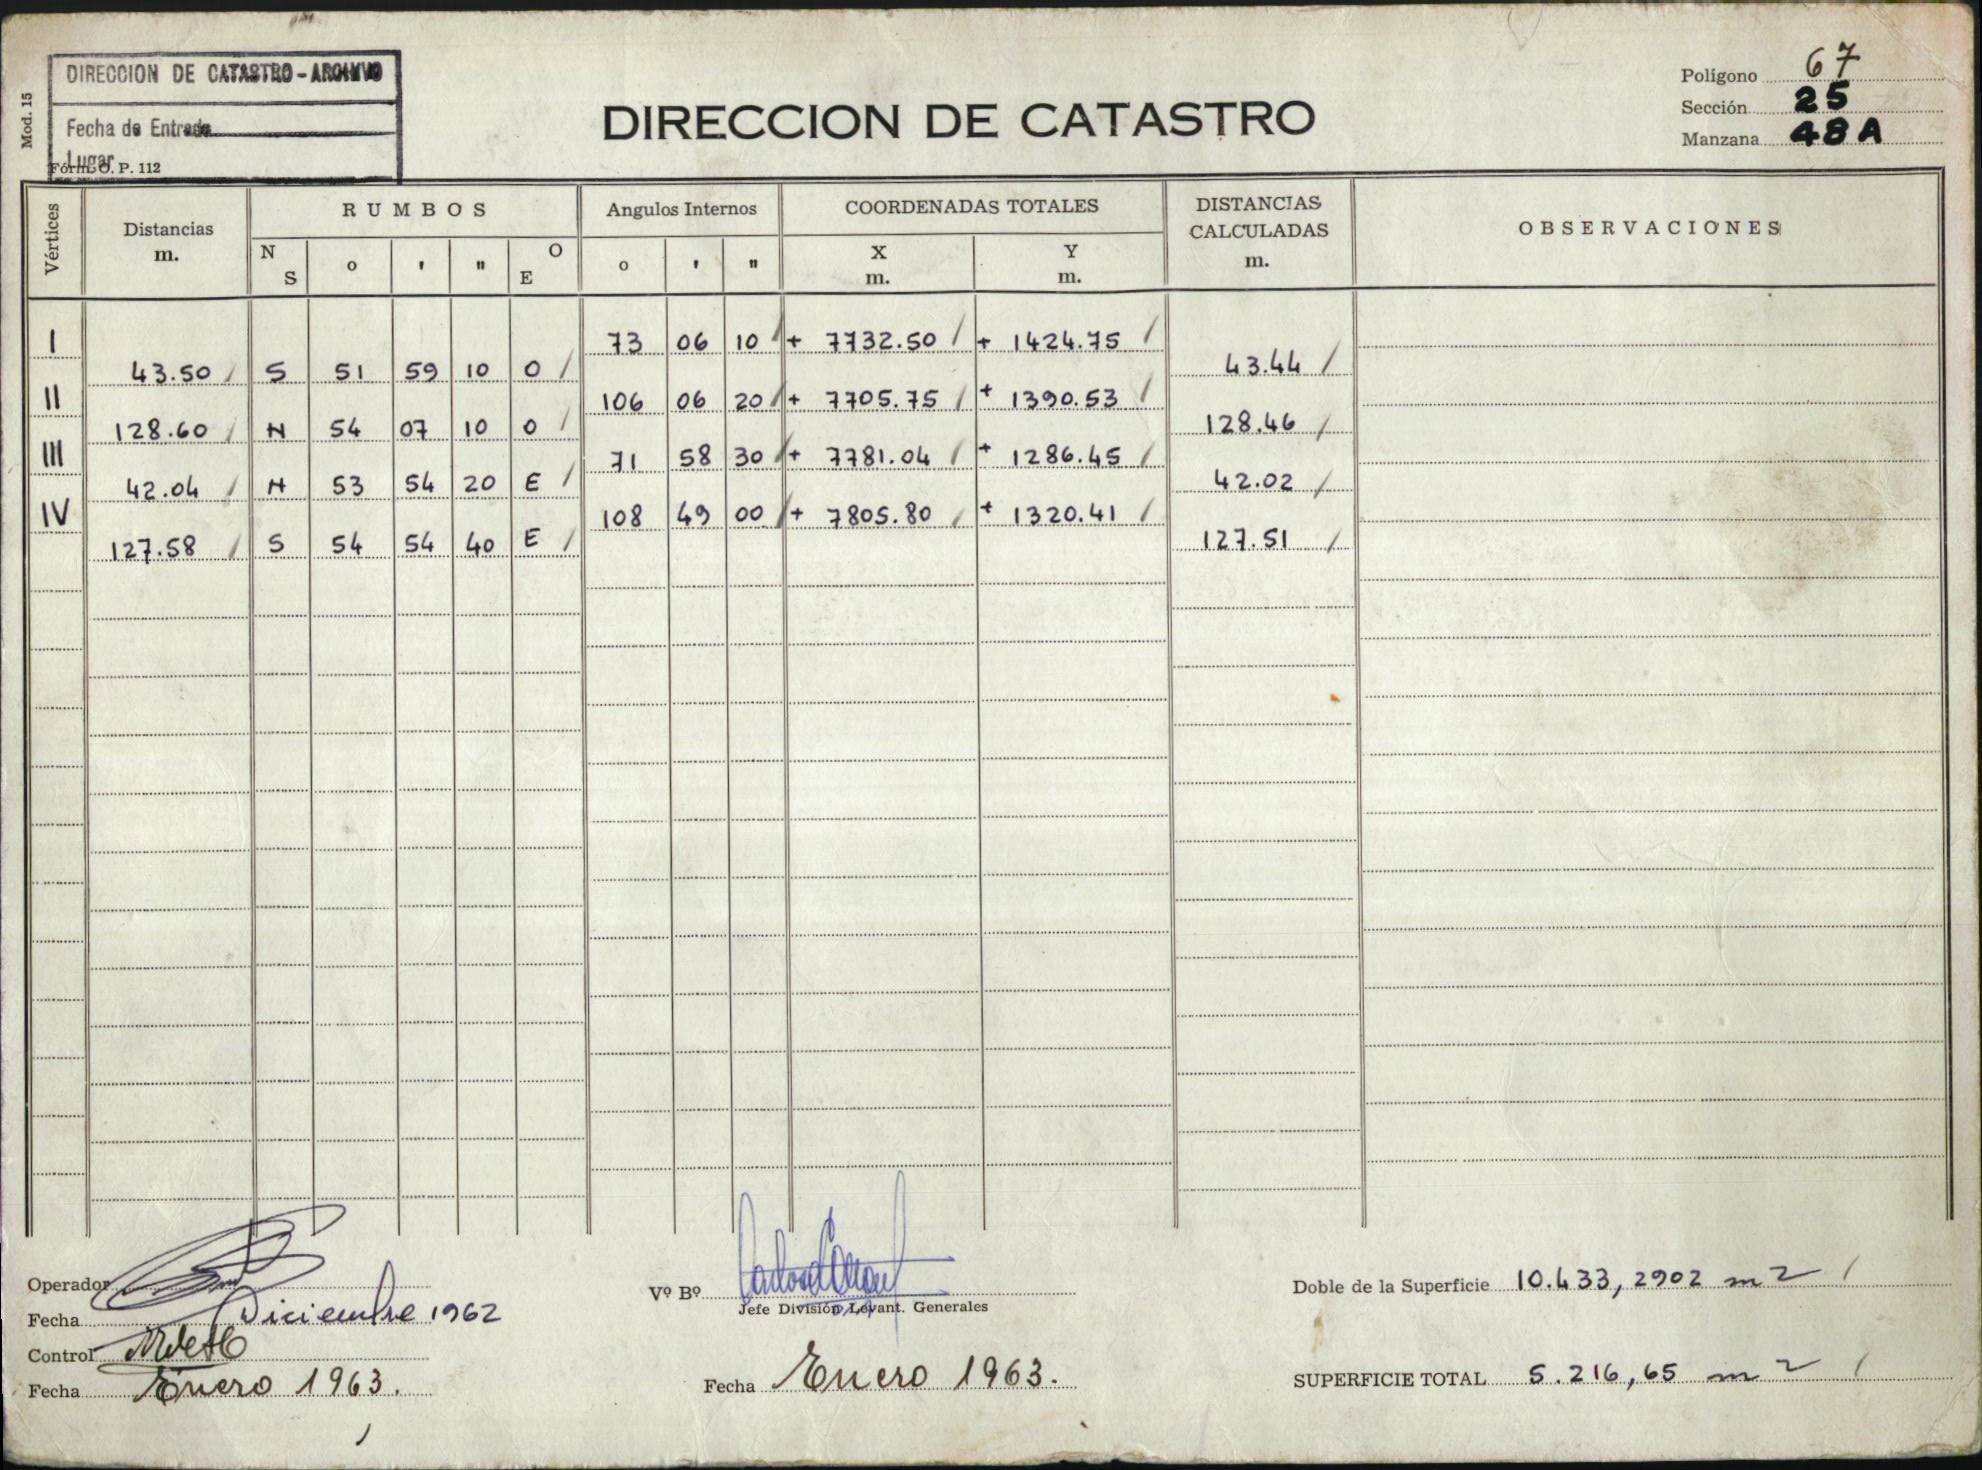 DIRECCION DE CATASTRO - ARCHIVO
Fecha de Entrada
Lugar
Mod. 15
Fórm. O. P. 112
DIRECCION DE CATASTRO
Polígono 67
Sección 25
Manzana 48 A
Vértices
Distancias m.
RUMBOS
N S o ' " O E
Angulos Internos
o ' "
COORDENADAS TOTALES
X m. Y m.
DISTANCIAS CALCULADAS m.
OBSERVACIONES
I 73 06 10 + 7732.50 + 1424.75
43.50 S 51 59 10 O 43.44
II 106 06 20 + 7705.75 + 1390.53
128.60 N 54 07 10 O 128.46
III 71 58 30 + 7781.04 + 1286.45
42.04 N 53 54 20 E 42.02
IV 108 49 00 + 7805.80 + 1320.41
127.58 S 54 54 40 E 127.51
Operador
Fecha Diciembre 1962
Control
Fecha Enero 1963.
Vº Bº
Jefe División Levant. Generales
Fecha Enero 1963.
Doble de la Superficie 10.433,2902 m2
SUPERFICIE TOTAL 5.216,65 m2